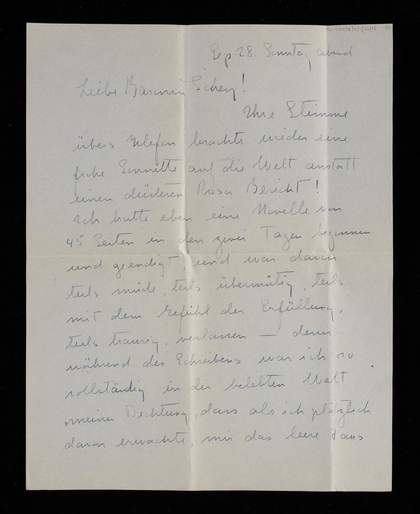 Sep. 28. Sonntag abend
Liebe Baronin
Ihre Stimme
übers Telefon brachte wieder eine
frohe Sonnette auf die Welt anstatt
einen düsteren Prosa Bericht!
Ich hatte eben eine Novelle von
45 Seiten in den zwei Tagen begonnen
und geendigt und war davon
teils müde, teils übermütig, teils
mit dem Gefühl der Erfüllung,
teils traurig, verlassen — denn
während des Schreibens war ich so
vollständig in der belebten Welt
meiner Dichtung, dass als ich plötzlich
daran erwachte, mir das leere Haus